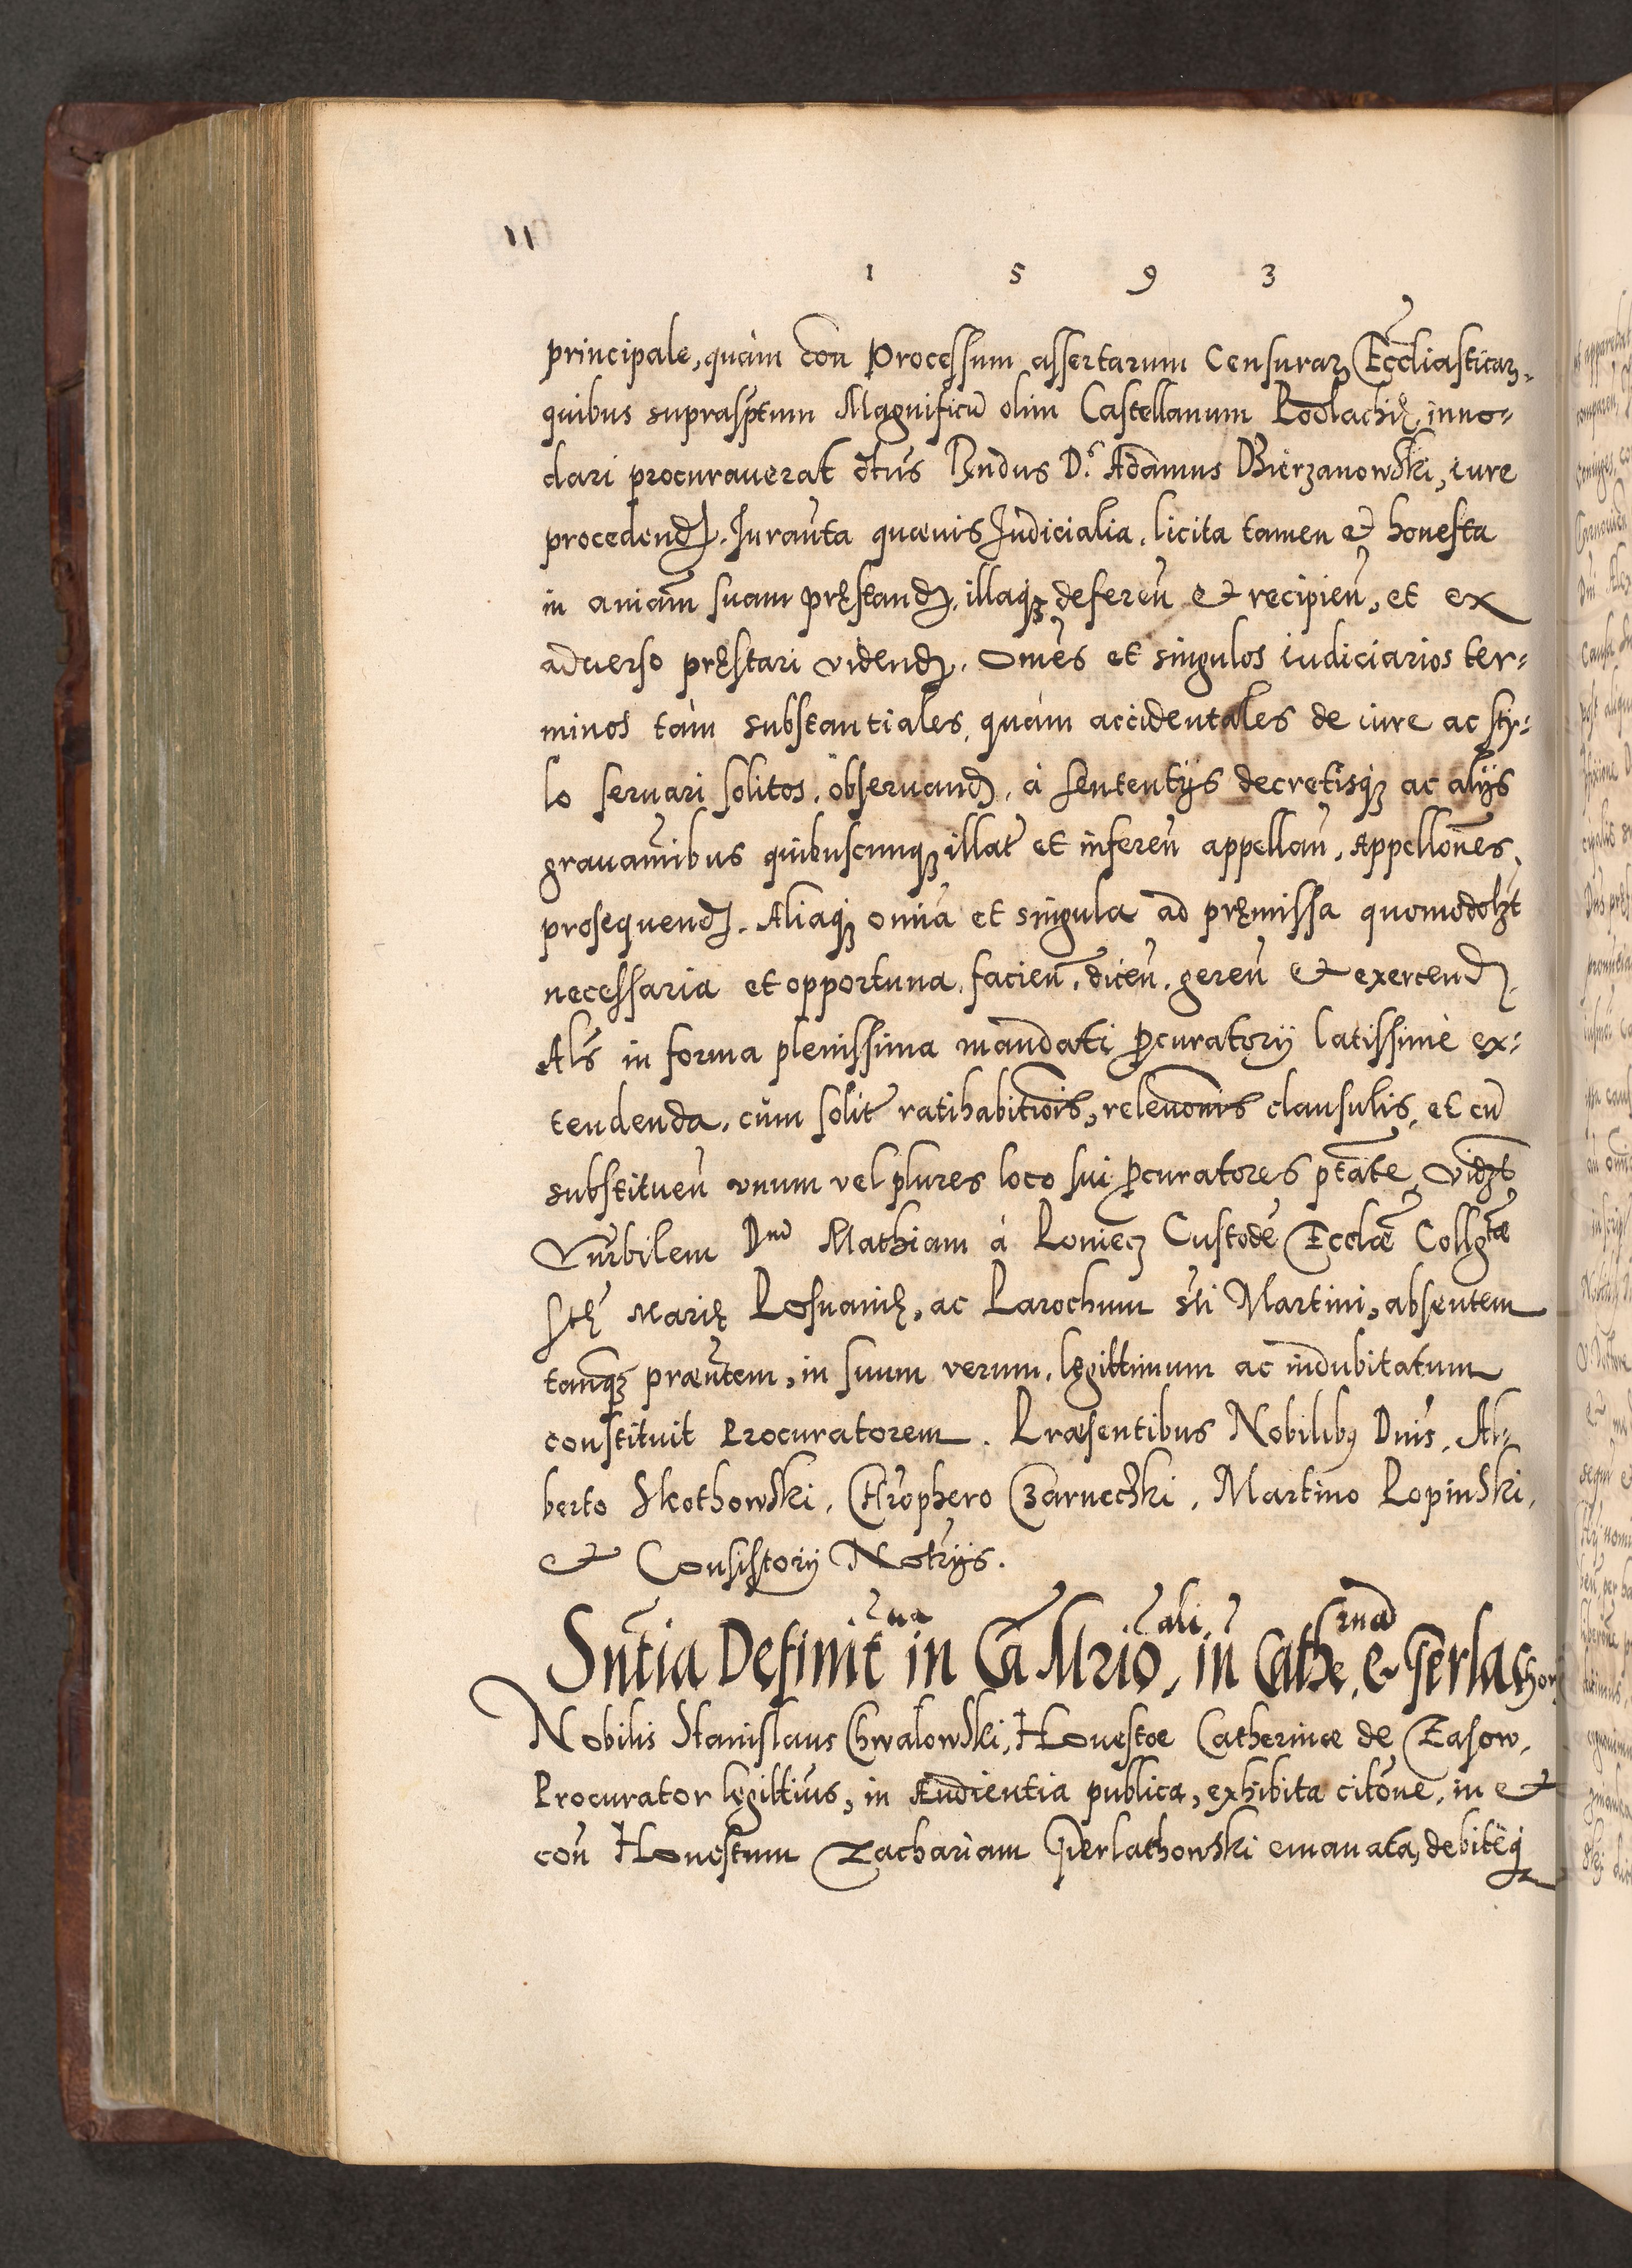 1 5 9 3
principale, quàm con̄ Processum assertarum Censuraꝝ Eccl̄iasticaꝝ,
quibus suprasptum Magnificū olim Castellanum Podlachię, inno-
dari procurauerat dt̄us Rn̄dus D.ˢ Adamus Bierzanowski, iure
procedend. Iuram̄ta quæuis Judicialia, licita tamen et honesta
in ani͠am suam pręstand, illaqꝫ deferen̄ et recipien̄, et ex
aduerso pręstari vidend. Omēs et singulos iudiciarios ter-
minos tàm substantiales, quàm accidentales de iure ac sty-
lo seruari solitos, obseruand, à sententijs decretisqꝫ ac alijs
grauam̄ibus quibuscunqꝫ illat et inferen̄ appellan̄, Appellōnes
prosequend. Aliaqꝫ omīa et singula ad pręmissa quomodolꝫt
necessaria et opportuna, facien̄, dicen̄, geren̄ et exercend.
Als̄ in forma plenissima mandati ꝓcuratorij latissimè ex-
tendenda, cùm solit ratihabitiōis, releuōnis clausulis, et cū
substituen̄ vnum vel plures loco sui ꝓcuratores ptāte, vidꝫt
Vn̄rbilem Dnū Mathiam à Koniecz Custodē Eccl̄æ Collgtæ
Stę Marię Posnanię, ac Parochum sti Martini, absentem
tanqꝫ præn̄tem, in suum verum, legittimum ac indubitatum
constituit Procuratorem. Præsentibus Nobilibꝰ Dnis, Al-
berto Skothowski, Chrophero Czarneczki, Martino Ropinski,
et Consistorij Notrijs.
Snt̄ia Definit̄ua in Cā Mr̄ioāli, in̄ Cathe.rnā e Gierlachow
Nobilis Stanislaus Chwalowski, Honestæ Catherinæ de Zasow,
Procurator legittīus, in Audientia publica, exhibita citōne, in et
con̄ Honestum Zachariam Gierlathowski emanata, debitèqꝫ